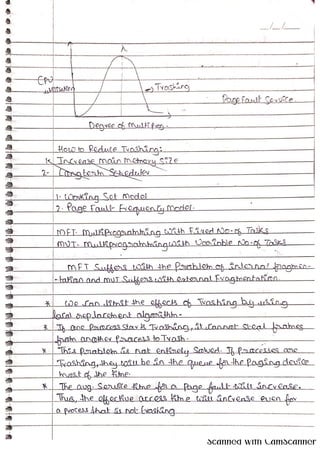 λ
CPU
utilization
Trashing
Page Fault Service
Degree of Multiprog.
How to Reduce Trashing:
1. Increase Main Memory Size
2- Long term Scheduler
1- Working Set Model
2. Page Fault Frequency Model.
MFT- Multiprogramming with Fixed No-of Tasks
MVT- Multiprogramming with Variable No-of Tasks
MFT Suffers with the Problem of internal fragmen-
-tation and MVT Suffers with external Fragmentation.
* We can limit the effects of Trashing by using
local replacement algorithm-
* If one Process starts Trashing, it cannot steal frames
from another Process to Trash.
* This Problem is not entirely Solved. If Processes are
Trashing, they will be in the queue for the Paging device
most of the time.
* The avg. Service time for a page fault will increase.
Thus, the effective access time will increase even for
a process that is not trashing
Scanned with CamScanner